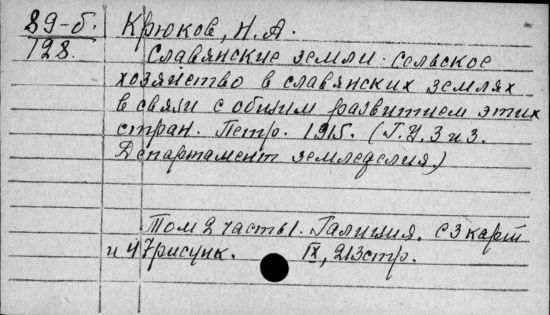 89-б.
128.
Крюков, Н. А.
Славянские земли. Сельское
хозяйство в славянских землях
в связи с общим развитием этих
стран. Петр. 1915. (Г.У. З и З.
Департамент земледелия)
Том 2 часть 1. Галиция. С 3 карт
и 47 рисунк. IX, 213 стр.